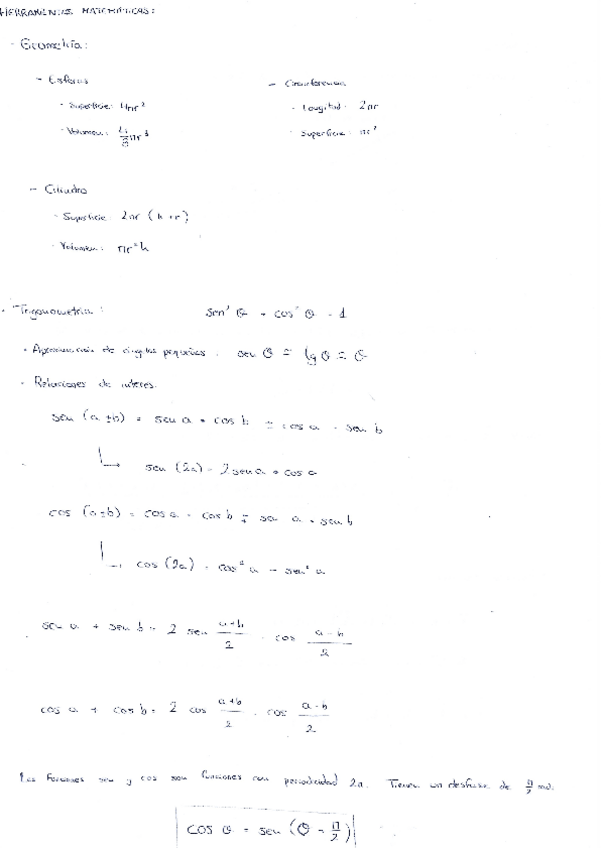 HERRAMIENTAS MATEMÁTICAS:
- Geometría:
- Esferas
- Circunferencia
- Superficie: 4πr²
- Longitud: 2πr
- Volumen: 4/3 πr³
- Superficie: πr²
- Cilindro
- Superficie: 2πr (h + r)
- Volumen: πr²h
- Trigonometría: sen² θ + cos² θ = 1
· Aproximación de ángulos pequeños: sen θ ≈ tg θ ≈ θ
· Relaciones de interés:
sen (a ± b) = sen a · cos b ± cos a · sen b
↳ sen (2a) = 2 sen a · cos a
cos (a ± b) = cos a · cos b ∓ sen a · sen b
↳ cos (2a) = cos² a - sen² a
sen a + sen b = 2 sen (a+b)/2 · cos (a-b)/2
cos a + cos b = 2 cos (a+b)/2 · cos (a-b)/2
Las funciones sen y cos son funciones con periodicidad 2π. Tienen un desfase de π/2 rad.
cos θ = sen (θ - π/2)